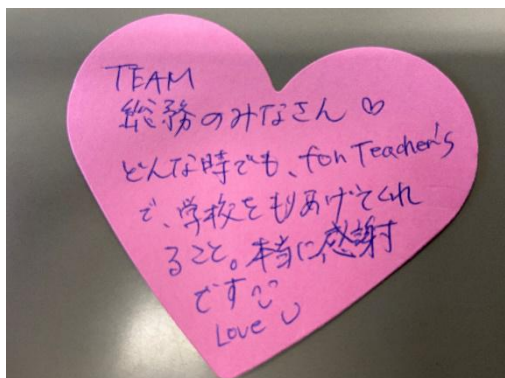 TEAM
総務のみなさん♡
どんな時でも、for Teacher's
で、学校をもりあげてくれ
ること。本当に感謝
です
Love U